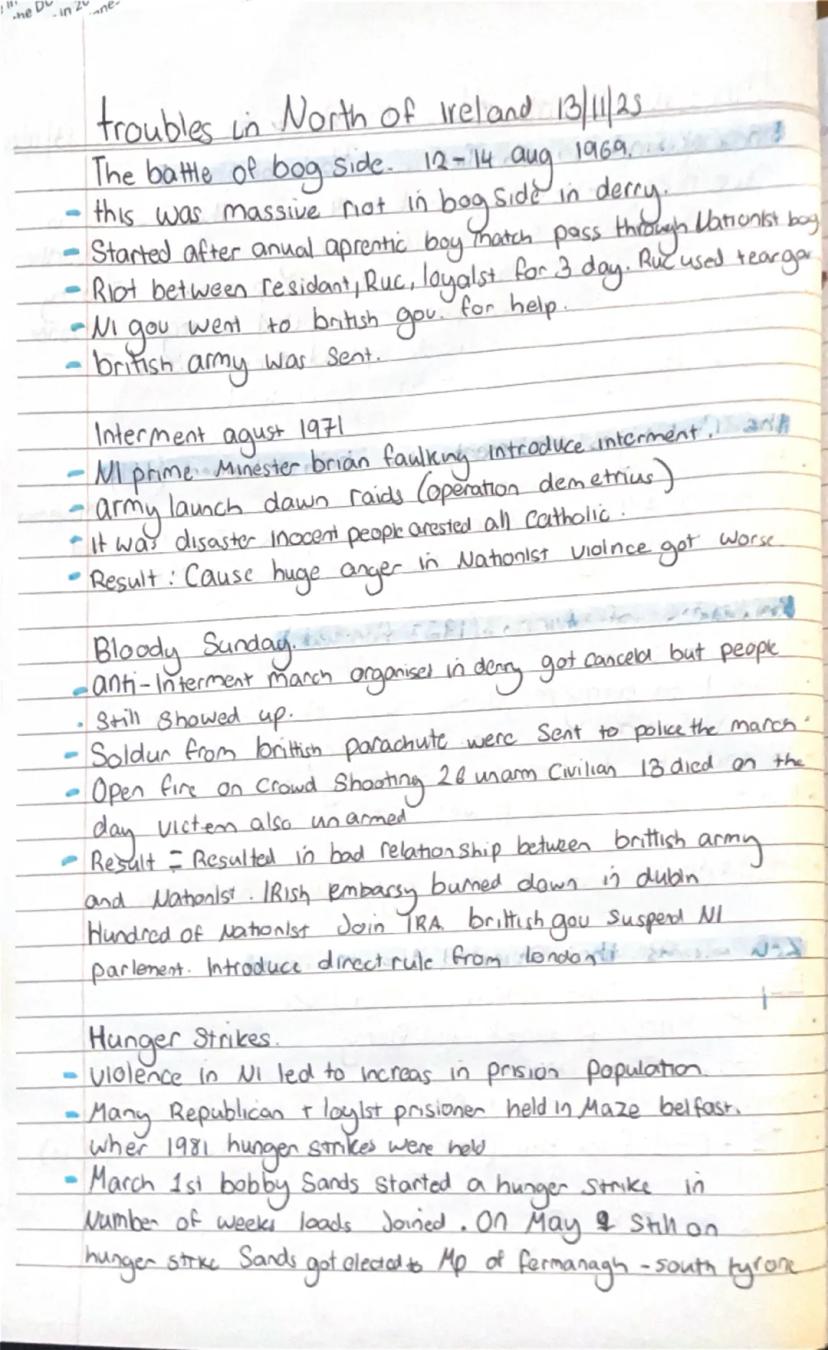 troubles in North of Ireland 13/11/25
The battle of bog side. 12-14 aug 1969.
- this was massive riot in bog side in derry.
- Started after anual aprentic boy match pass through Nationist bog
- Riot between residant, Ruc, loyalst for 3 day. Ruc used teargar
- NI gov went to british gov. for help.
- british army was sent.
Interment agust 1971
- NI prime. Minester brian faulkny introduce interment.
- army launch dawn raids (operation demetrius)
- it was disaster inocent people arested all Catholic.
- Result : Cause huge anger in Nationist violnce got worse
Bloody Sunday.
- anti-Interment march organises in derry got canceld but people
. Still Showed up.
- Soldur from brittish parachute were sent to police the march.
- Open fire on crowd Shooting 26 unarm Civilian 13 died on the
day victem also unarmed
- Result = Resulted in bad relationship between brittish army
and Nationlst. IRish embarsy burned down in dublin
Hundred of Nationlst Join IRA. brittish gov suspend NI
parlement. Introduce direct rule from london
Hunger Strikes.
- Violence in NI led to increas in prision population.
- Many Republican + loylst prisioner held in Maze belfast.
wher 1981 hunger strikes were held
- March 1st bobby Sands started a hunger strike in
Number of weeks loads Joined. On May Still on
hunger strke Sands got elected to Mp of fermanagh - south tyrone